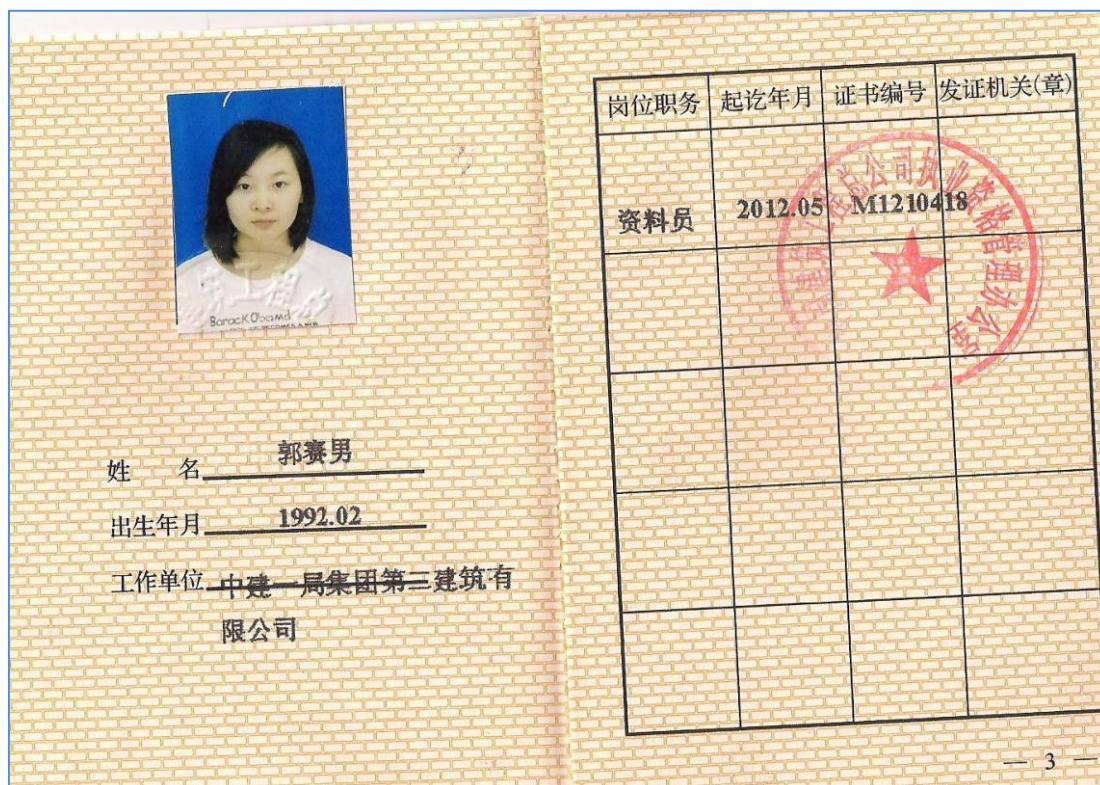 Barack Obama
姓 名 郭赛男
出生年月 1992.02
工作单位 中建一局集团第三建筑有
限公司
岗位职务 起讫年月 证书编号 发证机关(章)
资料员 2012.05 M1210418
公司执业资格管理办公室
— 3 —